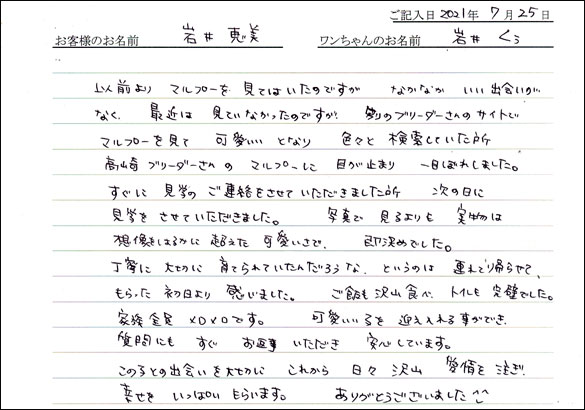 ご記入日 2021年 7月25日
お客様のお名前 岩井 恵美 ワンちゃんのお名前 岩井 くぅ
以前より マルプーを 見てはいたのですが なかなか いい出会いが
なく、最近は 見ていなかったのですが、 別のブリーダーさんのサイトで
マルプーを見て 可愛いい となり 色々と 検索していた所
高山崎ブリーダーさんの マルプーに 目が止まり 一目ぼれしました。
すぐに 見学の ご連絡をさせていただきました所 次の日に
見学を させていただきました。 写真で 見るよりも 実物は
想像をはるかに 超えた 可愛いさで、 即決めでした。
丁寧に 大切に 育てられていたんだろうな、というのは 連れて帰らせて、
もらった 初日より 感じました。 ご飯も 沢山食べ、トイレも 完璧でした。
家族全員 メロメロです。 可愛いい子を 迎え入れる事ができ、
質問にも すぐ お返事 いただき 安心しています。
この子との出会いを大切に これから 日々 沢山 愛情を 注ぎ、
幸せを いっぱい もらいます。 ありがとうございました^^